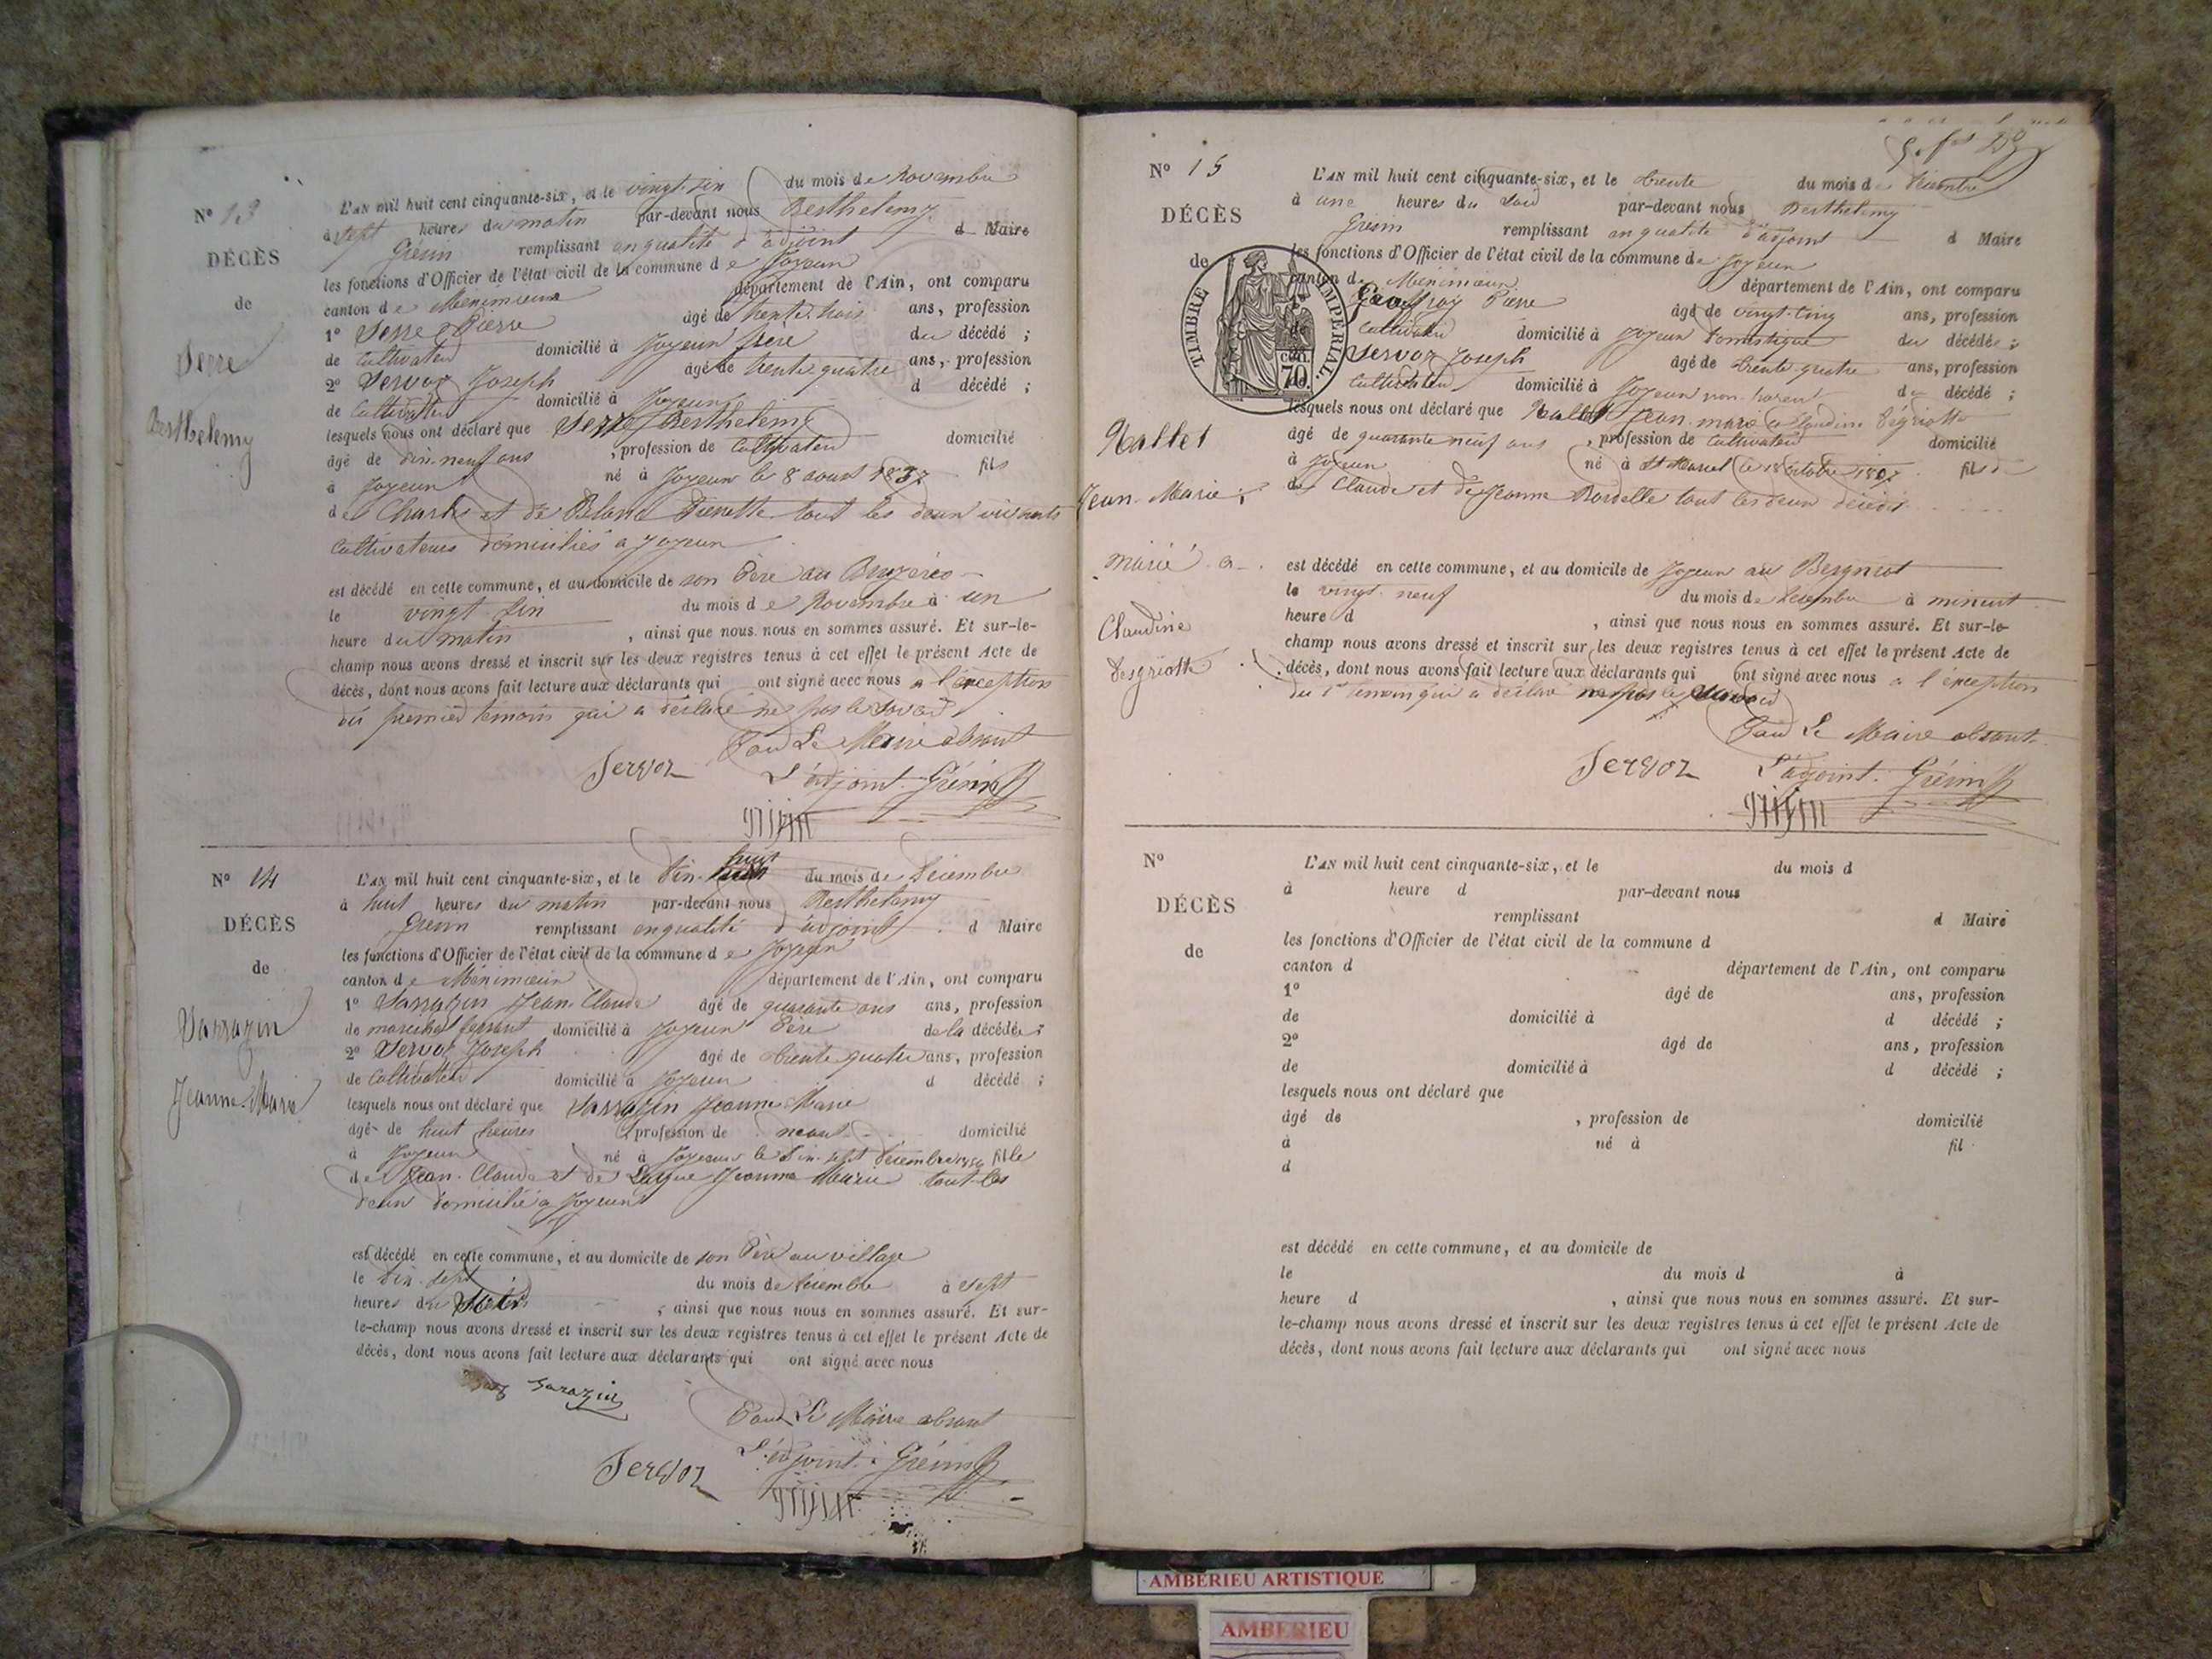 N° 13
DÉCÈS
de
Serre
Berthelemy
L'AN mil huit cent cinquante-six, et le vingt-six du mois de Novembre
à sept heures du matin par-devant nous Berthelemy
Grésin remplissant en qualité d'adjoint d Maire
les fonctions d'Officier de l'état civil de la commune de Joyeux
canton de Meximieux département de l'Ain, ont comparu
1° Serre Pierre âgé de trente-trois ans, profession
de Cultivateur domicilié à Joyeux frère du décédé ;
2° Servoz Joseph âgé de trente quatre ans, profession
de Cultivateur domicilié à Joyeux d décédé ;
lesquels nous ont déclaré que Serre Berthelemy
âgé de dix-neuf ans , profession de Cultivateur domicilié
à Joyeux né à Joyeux le 8 aout 1837 fils
de Charles et de Blanc Pierrette tout les deux vivants
Cultivateurs domiciliés a Joyeux
est décédé en cette commune, et au domicile de son Père au
le vingt six du mois de Novembre à un
heure du matin , ainsi que nous nous en sommes assuré. Et sur-le-
champ nous avons dressé et inscrit sur les deux registres tenus à cet effet le présent Acte de
décès, dont nous avons fait lecture aux déclarants qui ont signé avec nous a l'exception
du premier témoin qui a déclaré ne pas le savoir
Pour Le Maire absent
Servoz L'adjoint. Grésin
N° 14
DÉCÈS
de
Sarrazin
Jeanne-Marie
L'AN mil huit cent cinquante-six, et le dix-huit du mois de Décembre
à huit heures du matin par-devant nous Berthelemy
Grésin remplissant en qualité d'adjoint d Maire
les fonctions d'Officier de l'état civil de la commune de Joyeux
canton de Méximieux département de l'Ain, ont comparu
1° Sarrazin Jean-Claude âgé de quarante ans ans, profession
de marechal ferrant domicilié à Joyeux Père de la décédée ;
2° Servoz Joseph âgé de trente quatre ans, profession
de Cultivateur domicilié à Joyeux d décédé ;
lesquels nous ont déclaré que Sarrazin Jeanne Marie
âgé de huit heures , profession de néant domicilié
à Joyeux né à Joyeux le dix-sept décembre 1856 fille
de Jean-Claude et de Jeanne Marie tout les
deux domicilié a Joyeux
est décédé en cette commune, et au domicile de son Père au village
le dix-sept du mois de décembre à sept
heures du , ainsi que nous nous en sommes assuré. Et sur-
le-champ nous avons dressé et inscrit sur les deux registres tenus à cet effet le présent Acte de
décès, dont nous avons fait lecture aux déclarants qui ont signé avec nous
Sarazin
Pour Le Maire absent
Servoz L'adjoint. Grésin
N° 15
DÉCÈS
de
TIMBRE IMPERIAL
70
Jean-Marie
marié a
Claudine
L'AN mil huit cent cinquante-six, et le trente du mois de Décembre
à une heures du soir par-devant nous Berthelemy
Grésin remplissant en qualité d'adjoint d Maire
les fonctions d'Officier de l'état civil de la commune de Joyeux
canton de Méximieux département de l'Ain, ont comparu
Geoffray Pierre âgé de vingt-cinq ans, profession
de Cultivateur domicilié à Joyeux domestique du décédé ;
Servoz Joseph âgé de trente-quatre ans, profession
de Cultivateur domicilié à Joyeux non parent du décédé ;
lesquels nous ont déclaré que Jean-marie
âgé de quarante neuf ans , profession de Cultivateur domicilié
à Joyeux né à St Marcel le 18 octobre 1807 fils
de Claude et de Jeanne tout les deux décédés
est décédé en cette commune, et au domicile de Joyeux au
le vingt-neuf du mois de décembre à minuit
heure d , ainsi que nous nous en sommes assuré. Et sur-le-
champ nous avons dressé et inscrit sur les deux registres tenus à cet effet le présent Acte de
décès, dont nous avons fait lecture aux déclarants qui ont signé avec nous a l'exception
du 1er témoin qui a déclaré ne pas le savoir
Pour Le Maire absent
Servoz L'adjoint. Grésin
N°
DÉCÈS
de
L'AN mil huit cent cinquante-six, et le du mois d
à heure d par-devant nous
remplissant d Maire
les fonctions d'Officier de l'état civil de la commune d
canton d département de l'Ain, ont comparu
1° âgé de ans, profession
de domicilié à d décédé ;
2° âgé de ans, profession
de domicilié à d décédé ;
lesquels nous ont déclaré que
âgé de , profession de domicilié
à né à fil
d
est décédé en cette commune, et au domicile de
le du mois d à
heure d , ainsi que nous nous en sommes assuré. Et sur-
le-champ nous avons dressé et inscrit sur les deux registres tenus à cet effet le présent Acte de
décès, dont nous avons fait lecture aux déclarants qui ont signé avec nous
AMBERIEU ARTISTIQUE
AMBERIEU